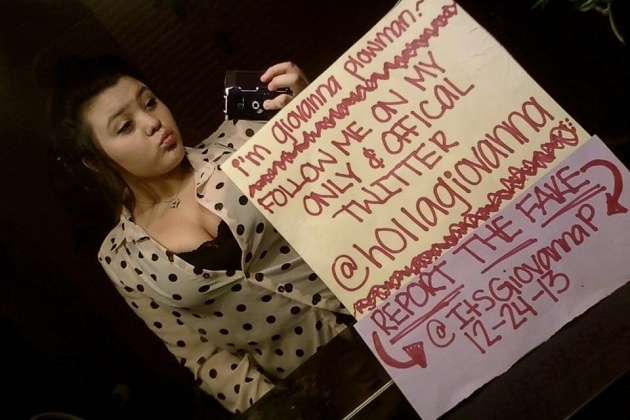 I'm giovanna plowman:-
FOLLOW ME ON MY
ONLY & OFFICAL
TWITTER
@hollagiovanna
REPORT THE FAKE-
@ItsGiovannaP
12-24-13